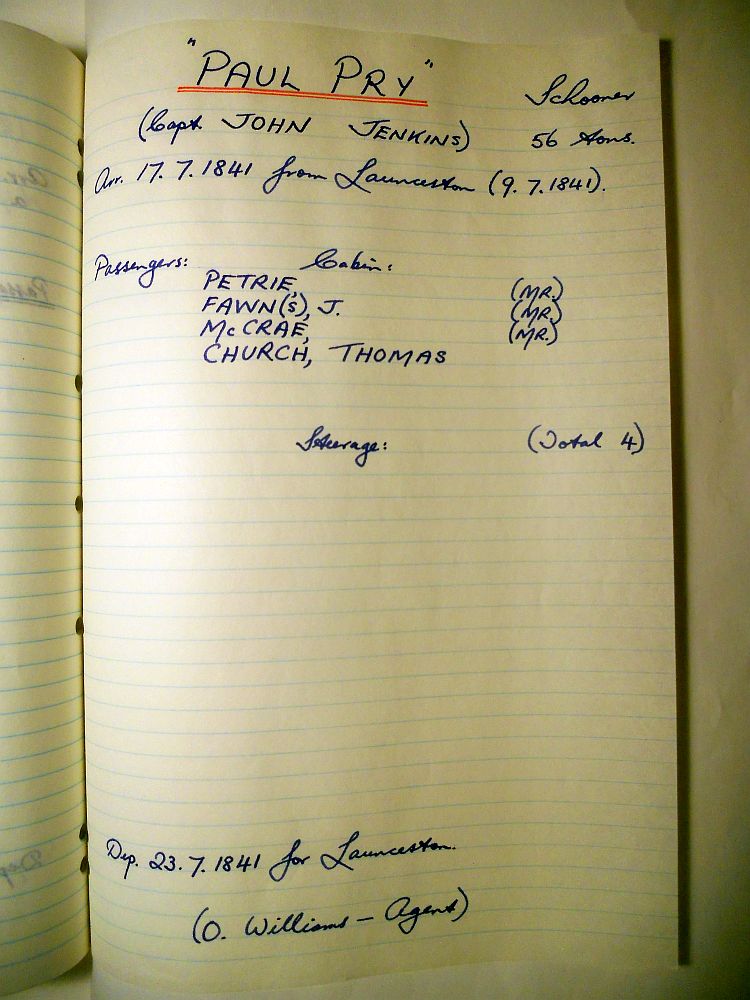 "PAUL PRY" Schooner
(Capt. JOHN JENKINS) 56 tons.
Arr. 17.7.1841 from Launceston (9.7.1841).
Passengers: Cabin:
PETRIE, (MR.)
FAWN(S), J. (MR.)
McCRAE, (MR.)
CHURCH, THOMAS
Steerage: (Total 4)
Dep. 23.7.1841 for Launceston.
(O. Williams – Agent)